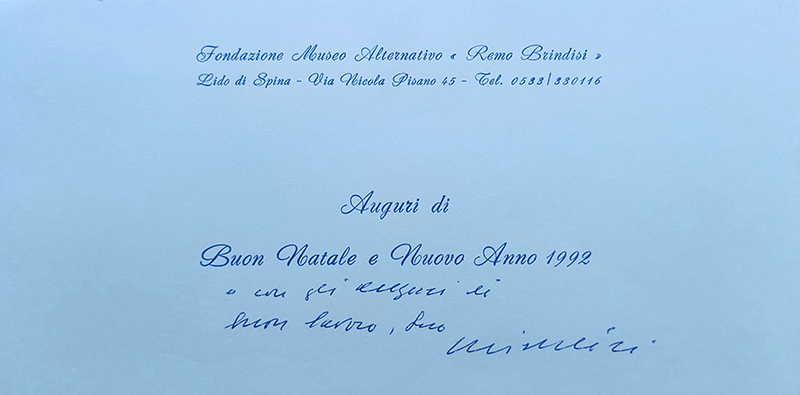 Fondazione Museo Alternativo « Remo Brindisi »
Lido di Spina - Via Nicola Pisano 45 - Tel. 0533/330116
Auguri di
Buon Natale e Nuovo Anno 1992
e con gli auguri di
buon lavoro, Suo